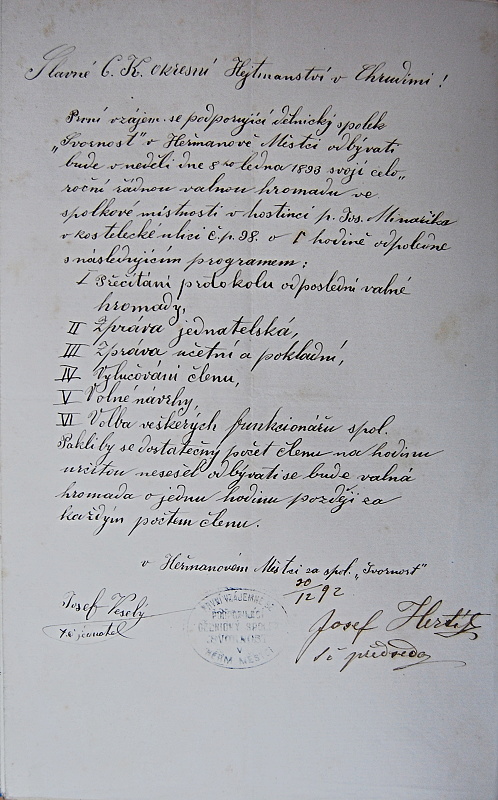 Slavné C. K. okresní Hejtmanství v Chrudimi!
První vzájem. se podporující dělnický spolek
„Svornost" v Heřmanově Městci odbývati
bude v neděli dne 8ho ledna 1893 svoji celo„
roční řádnou valnou hromadu ve
spolkové místnosti v hostinci p. Jos. Minaříka
v kostelecké ulici č. p. 98. o 1 hodině odpoledne
s následujícím programem:
I Přečítání protokolu od poslední valné
hromady,
II Zpráva jednatelská,
III Zpráva učetní a pokladní,
IV Vylučování členu,
V Volné návrhy,
VI Volba veškerých funkcionářu spol.
Pakliby se dostatečný počet členu na hodinu
určitou nesešel odbývati se bude valná
hromada o jednu hodinu později za
každým počtem členu.
v Heřmanovém Městci za spol. „Svornost"
20/12 92
Josef Veselý
jednatel
PRVNÍ VZÁJEMNĚ SE
PODPORUJÍCÍ
DĚLNICKÝ SPOLEK
SVORNOST
V
HEŘM. MĚSTCI
Josef
předseda